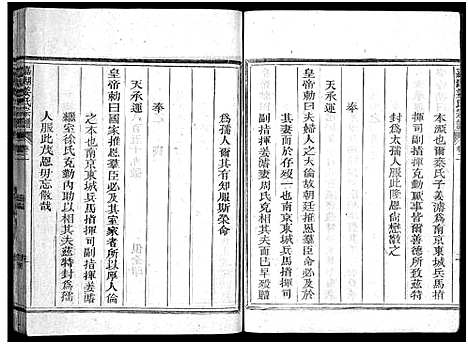 本源也爾蔡氏子姜濬為南京東城兵馬指
揮司副指揮克勤厥事皆爾善德所致茲特
封為太孺人服此隆恩尚懋敬之
奉
天承運
皇帝勅曰夫婦人之大倫故朝廷推恩羣臣命必及
其妻而於存殁一也南京東城兵馬指揮司
副指揮姜濬妻周氏克修婦道早已殁
為孺人爾其有知服斯榮命
奉
天承運
皇帝勅曰國家推恩羣臣必及其室家者所以厚人倫
之本也南京東城兵馬指揮司副指揮姜濬
繼室徐氏克勤內助以相其夫茲特封為孺
人服此茂恩毋忘儆哉